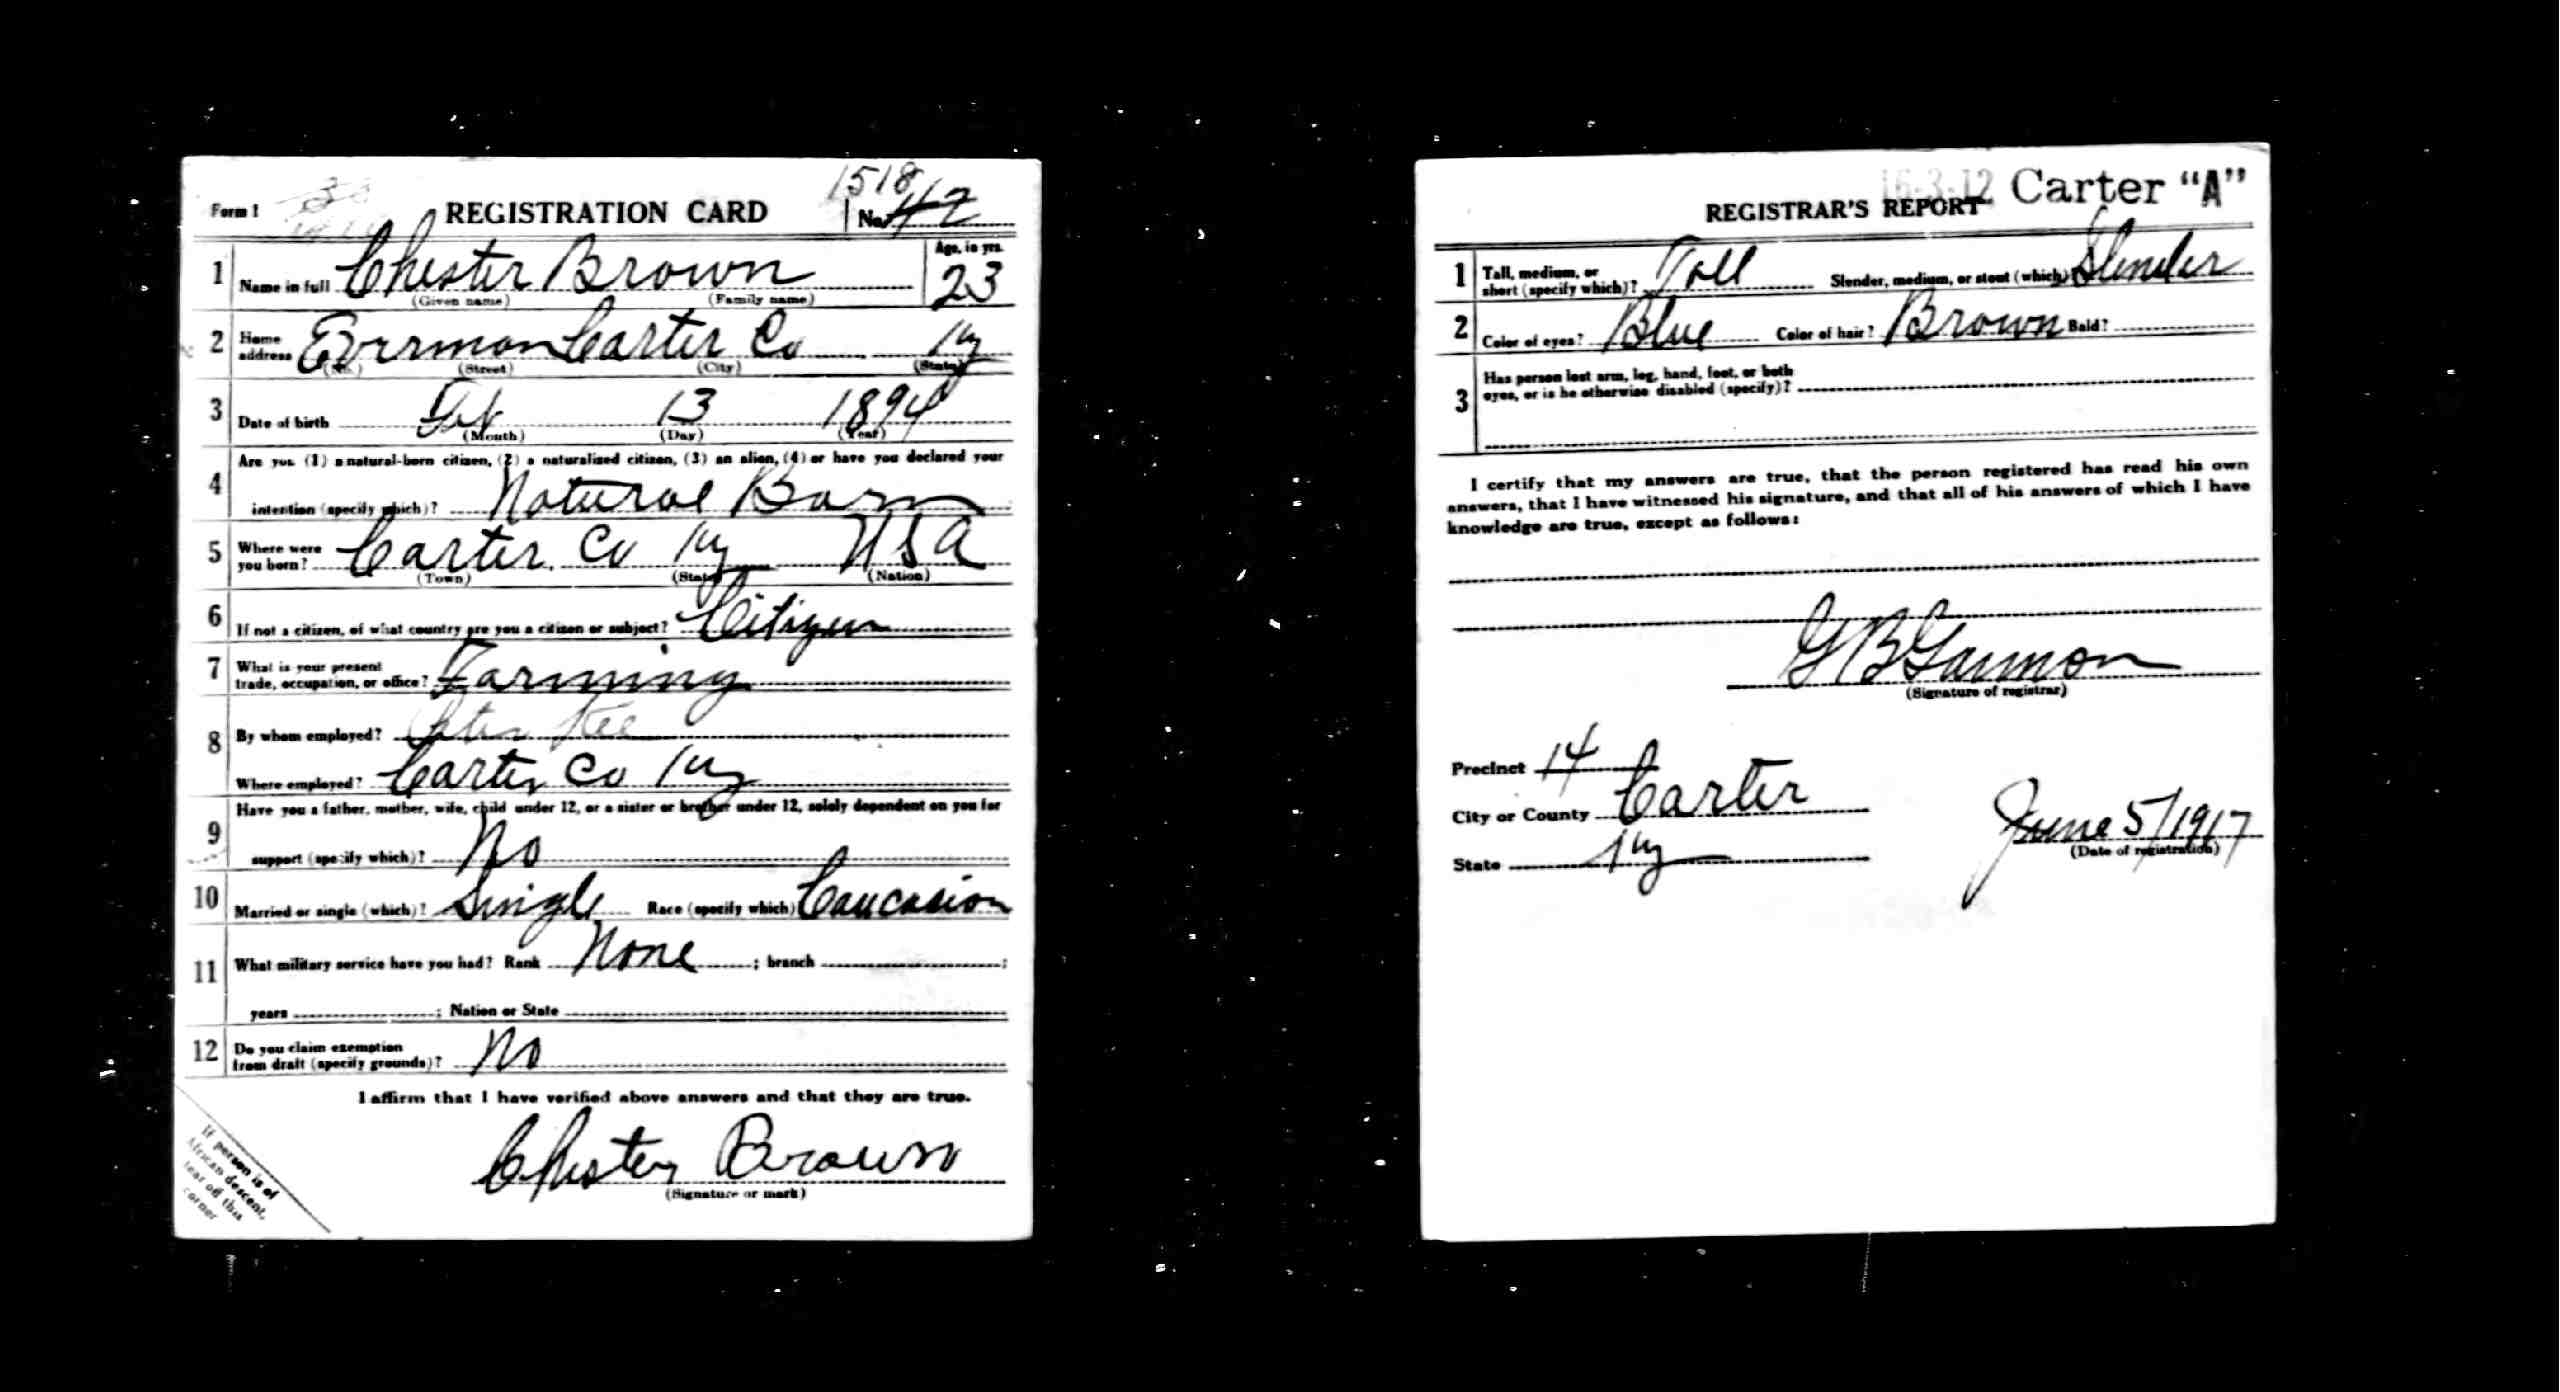 1518
Form 1 REGISTRATION CARD No. 42
1 Name in full Chester Brown Age, in yrs. 23
(Given name) (Family name)
2 Home address Everman Carter Co Ky
(No.) (Street) (City) (State)
3 Date of birth Feb 13 1894
(Month) (Day) (Year)
4 Are you (1) a natural-born citizen, (2) a naturalized citizen, (3) an alien, (4) or have you declared your
intention (specify which)? Natural Born
5 Where were you born? Carter Co Ky USA
(Town) (State) (Nation)
6 If not a citizen, of what country are you a citizen or subject? Citizen
7 What is your present trade, occupation, or office? Farming
8 By whom employed?
Where employed? Carter Co Ky
9 Have you a father, mother, wife, child under 12, or a sister or brother under 12, solely dependent on you for
support (specify which)? No
10 Married or single (which)? Single Race (specify which) Caucasion
11 What military service have you had? Rank None ; branch ;
years ; Nation or State
12 Do you claim exemption from draft (specify grounds)? No
I affirm that I have verified above answers and that they are true.
Chester Brown
(Signature or mark)
If person is of
African descent,
tear off this
corner
16-3-12 Carter "A"
REGISTRAR'S REPORT
1 Tall, medium, or short (specify which)? Tall Slender, medium, or stout (which)? Slender
2 Color of eyes? Blue Color of hair? Brown Bald?
3 Has person lost arm, leg, hand, foot, or both
eyes, or is he otherwise disabled (specify)?
I certify that my answers are true, that the person registered has read his own
answers, that I have witnessed his signature, and that all of his answers of which I have
knowledge are true, except as follows:
G B
(Signature of registrar)
Precinct 14
City or County Carter
State Ky
June 5/1917
(Date of registration)